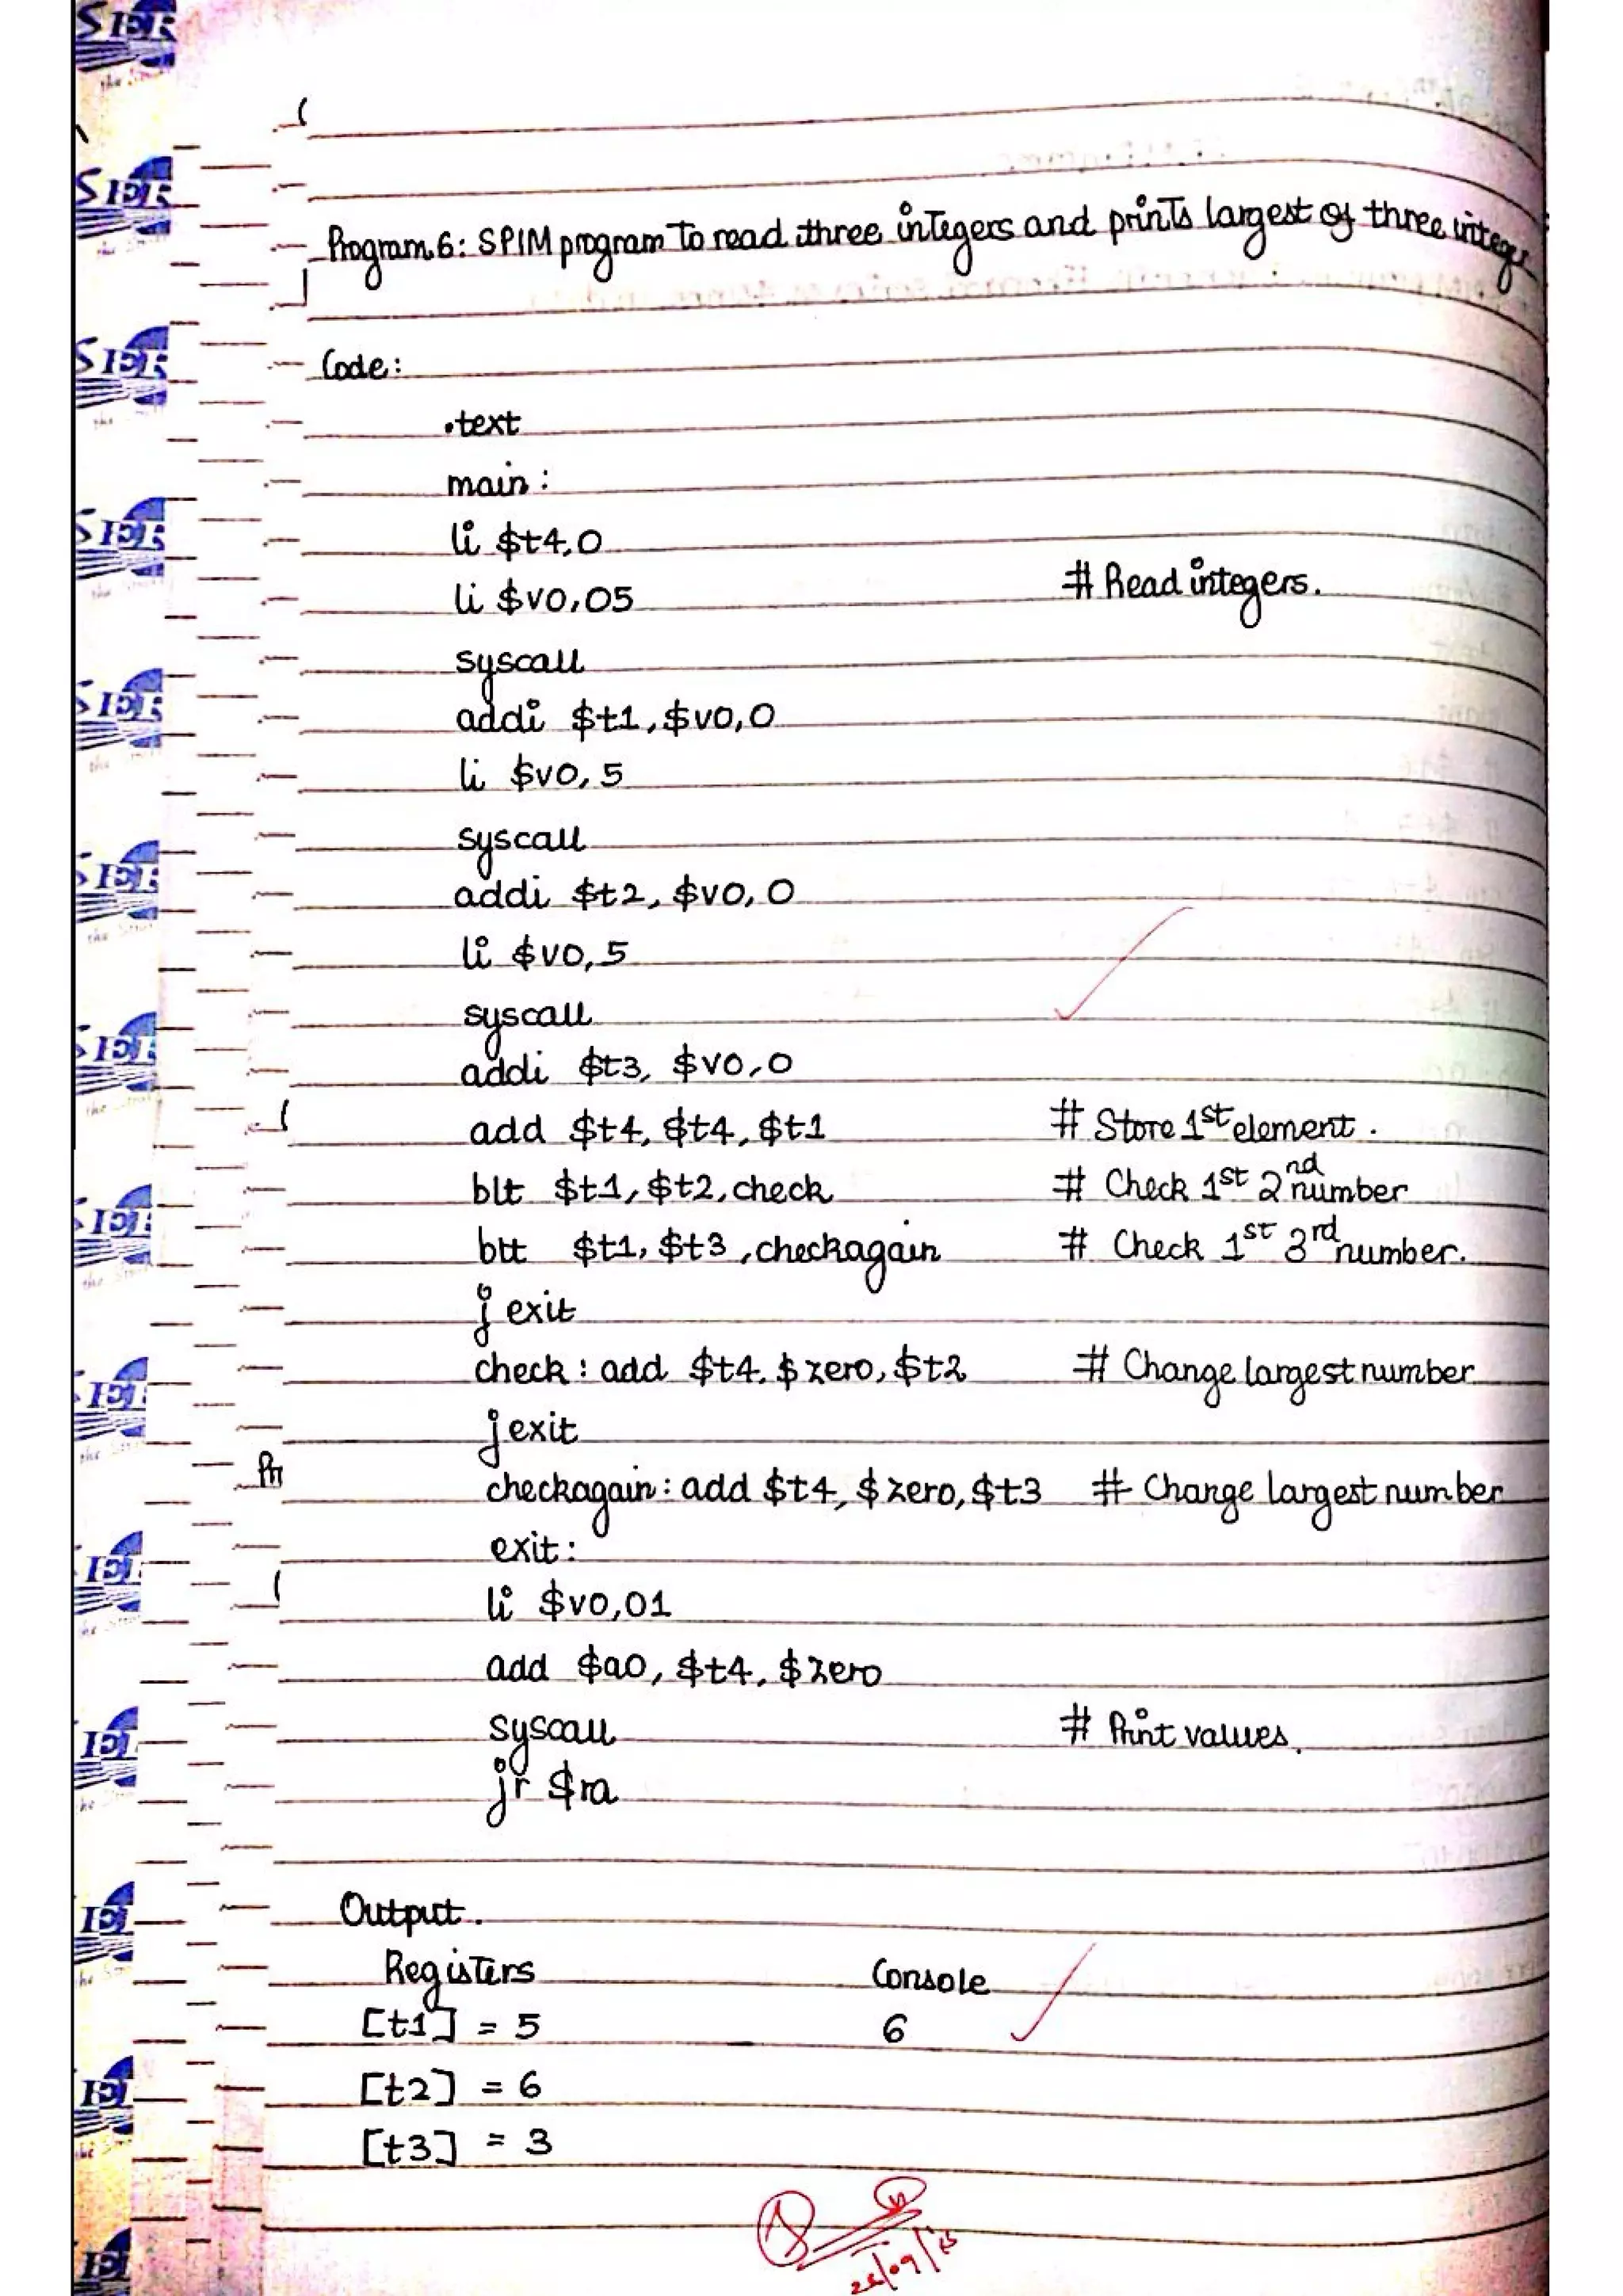 Program 6: SPIM program to read three integers and prints largest of three integer
Code:
.text
main:
li $t4,0
li $v0,05 # Read integers.
syscall
addi $t1,$v0,0
li $v0,5
syscall
addi $t2,$v0,0
li $v0,5
syscall
addi $t3,$v0,0
add $t4,$t4,$t1 # Store 1st element.
blt $t1,$t2,check # Check 1st 2nd number
btt $t1,$t3,checkagain # Check 1st 3rd number.
j exit
check: add $t4,$zero,$t2 # Change largest number
j exit
checkagain: add $t4,$zero,$t3 # Change largest number
exit:
li $v0,01
add $a0,$t4,$zero
syscall # Print values.
jr $ra
Output.
Registers Console
[t1] = 5 6
[t2] = 6
[t3] = 3